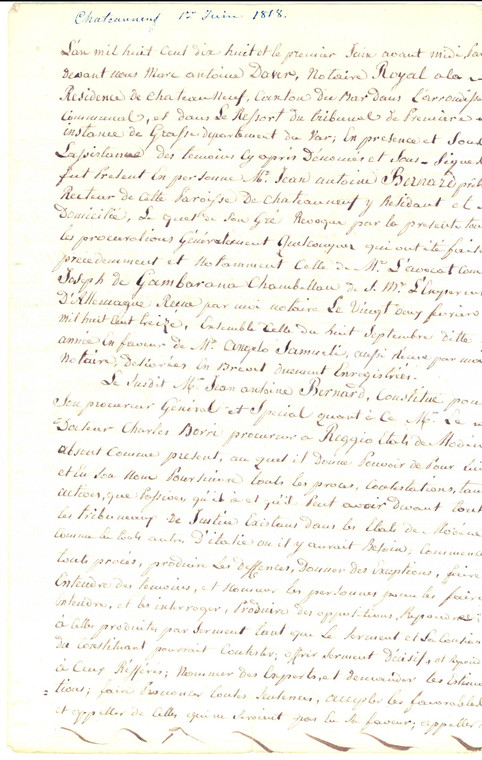 Chateauneuf 1er Juin 1818.
L'an mil huit Cent dix huit et le premier Juin avant midi, Par
devant nous Marc antoine Daver, Notaire Royal a la
Residence de Chateauneuf, Canton du Bar dans L'arrondisse
Communal, et dans Le Ressort du tribunal de Premiere
instance de Grasse departement du Var; En presence et Sous
L'assistance des temoins Cy après Denomés et Sous-Signés
fut Present en personne Mr. Jean antoine Bernard prêt
Recteur de Cette Paroisse de Chateauneuf y Residant et
Domicilié, Le quel de Son Gré Revoque par le presente tou
les procurations Généralement Quelconques qui ont été faite
precedemment et Notamment Celle de Mr. L'avocat Com
Joseph de Gambarana Chambellan de S. Mté L'Empereur
D'Allemagne Reçue par moi notaire Le Vingt deux fevrier
mil huit Cent treize, Ensemble Celle du huit Septembre ditte
année en faveur de Mr. Angelo Samuelli, aussi Reçue par moi
Notaire, delivrées En Brevet duement Enregistrées.
Le Susdit Mr. Jean antoine Bernard, Constitue pour
Son procureur Général et Spécial quant à Ce Mr. Le
Docteur Charles Borri procureur a Reggio Etats de Modène
absent Comme present, au quel il Donne Pouvoir de Pour lui
et En Son Nom Poursuivre touts les procès, Contestations, tant
actives, que Passives qu'il a et qu'il Peut avoir devant tout
les tribuneaux de Justice Existens dans les Etats de Modène
comme de touts autres d'italie ou il y aurait Besoin; Commencer
touts procès, produire les Deffences, Donner des Exceptions, faire
Entendre des temoins, et Nommer les personnes pour les faire
Entendre, et les interroger, Produire des opposi-tions, Repondre
à Celles produites par Serment tant que le Serment et Sa Contien
des Constituant pourrait Contester; offrir Serment Décisif, et
à Ceux Référés; Nommer des Experts, et demander les Estima
tions; faire Prononcer toutes Sentences, accepter les favorables
et appeller de Celles qui ne Seroient pas En Sa faveur; appeller